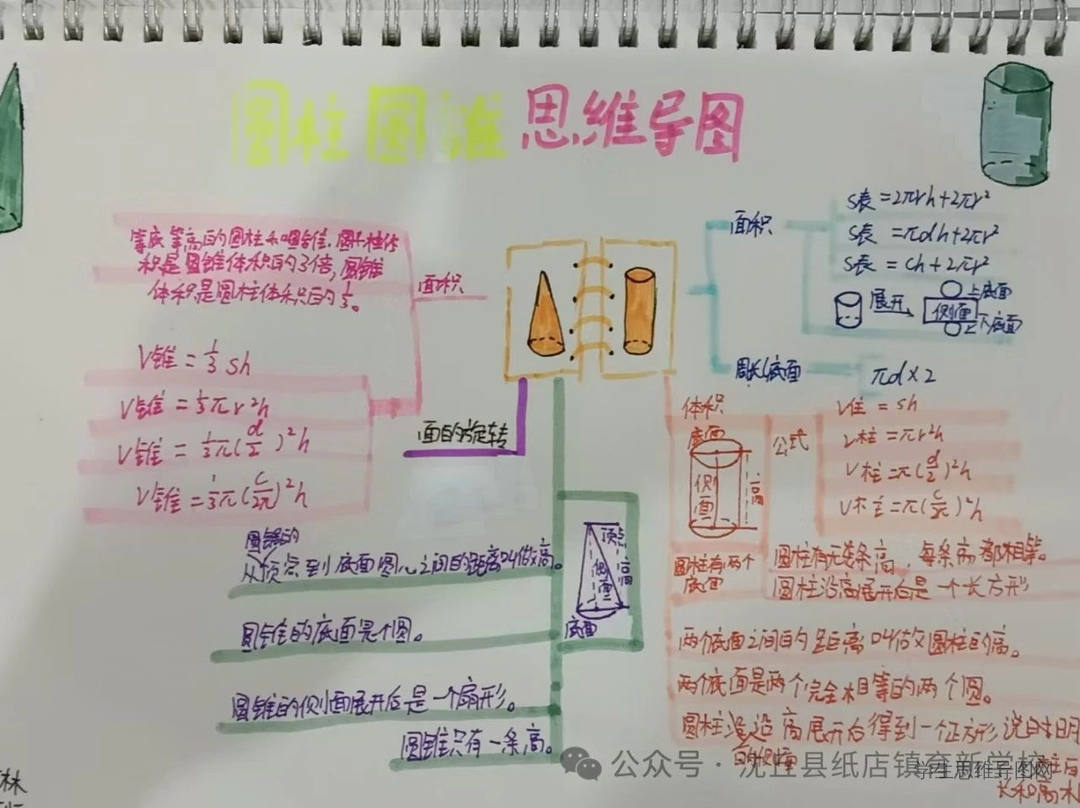 圆柱圆锥思维导图
等底等高的圆柱和圆锥,圆柱体
积是圆锥体积的3倍,圆锥
体积是圆柱体积的1/3。
面积
V锥=1/3sh
V锥=1/3πr²h
V锥=1/3π(d/2)²h
V锥=1/3π(C/2π)²h
面的旋转
圆锥的
从顶点到底面圆心之间的距离叫做高。
圆锥的底面是个圆。
圆锥的侧面展开后是一个扇形。
圆锥只有一条高。
顶点
侧面
高
底面
面积
S表=2πrh+2πr²
S表=πdh+2πr²
S表=Ch+2πr²
展开
上底面
侧面
下底面
周长底面
πd×2
体积
底面
侧面
高
公式
V住=sh
V柱=πr²h
V柱=π(d/2)²h
V柱=π(C/2π)²h
圆柱有两个
底面
圆柱有无数条高,每条高都相等。
圆柱沿高展开后是一个长方形
两个底面之间的距离叫做圆柱的高。
两个底面是两个完全相等的两个圆。
圆柱沿高展开后得到一个正方形说明
长和高
林
公众号·沈丘县纸店镇育新学校
学生思维导图网